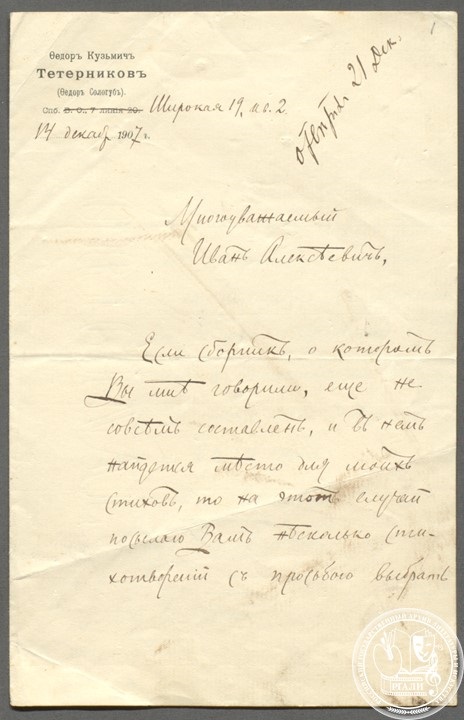 1
Ѳедоръ Кузьмичъ
Тетерниковъ
(Ѳедоръ Сологубъ).
Спб. В. О., 7 линія 20. Широкая 19, кв. 2
14 декабр 1907 г.
отвѣтил 21 Дек.
Многоуважаемый
Иванъ Алексѣевичъ,
Если сборникъ, о которомъ
Вы мнѣ говорили, еще не
совсѣмъ составленъ, и въ немъ
найдется мѣсто для моихъ
стиховъ, то на этотъ случай
посылаю Вамъ нѣсколько сти-
хотворений съ просьбою выбрать
РГАЛИ